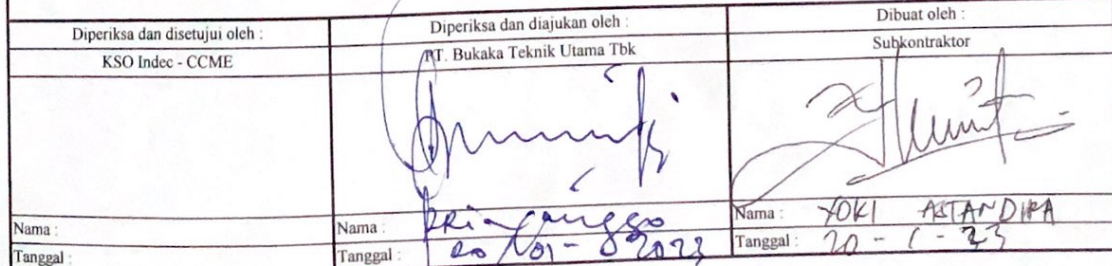 Diperiksa dan disetujui oleh :
Diperiksa dan diajukan oleh :
Dibuat oleh :
KSO Indec - CCME
PT. Bukaka Teknik Utama Tbk
Subkontraktor
Nama :
Nama :
Nama : YOKI ASTANDIRA
Tanggal :
Tanggal : 20 /01 - 2023
Tanggal : 20 - 1 - 23